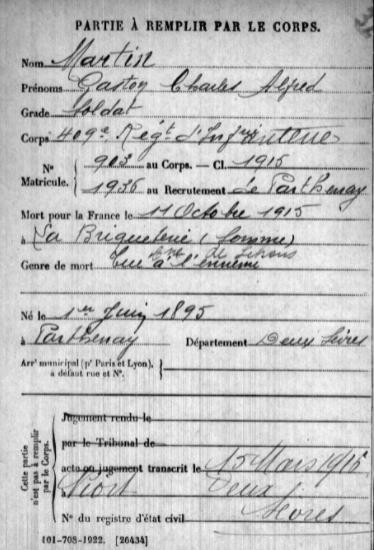 PARTIE À REMPLIR PAR LE CORPS.
Nom Martin
Prénoms Gaston Charles Alfred
Grade Soldat
Corps 409e Régt d'Infanterie
N° Matricule. { 903 au Corps. — Cl. 1915
1936 au Recrutement de Parthenay
Mort pour la France le 11 Octobre 1915
à La Briqueterie (Somme)
Genre de mort Tué à l'ennemi
Né le 1er Juin 1895
à Parthenay Département Deux Sèvres
Arrt municipal (pr Paris et Lyon), à défaut rue et N°.
Cette partie n'est pas à remplir par le Corps.
Jugement rendu le
par le Tribunal de
acte ou jugement transcrit le 15 Mars 1916
à Niort Deux
Sèvres
N° du registre d'état civil
101-708-1922. [26434]